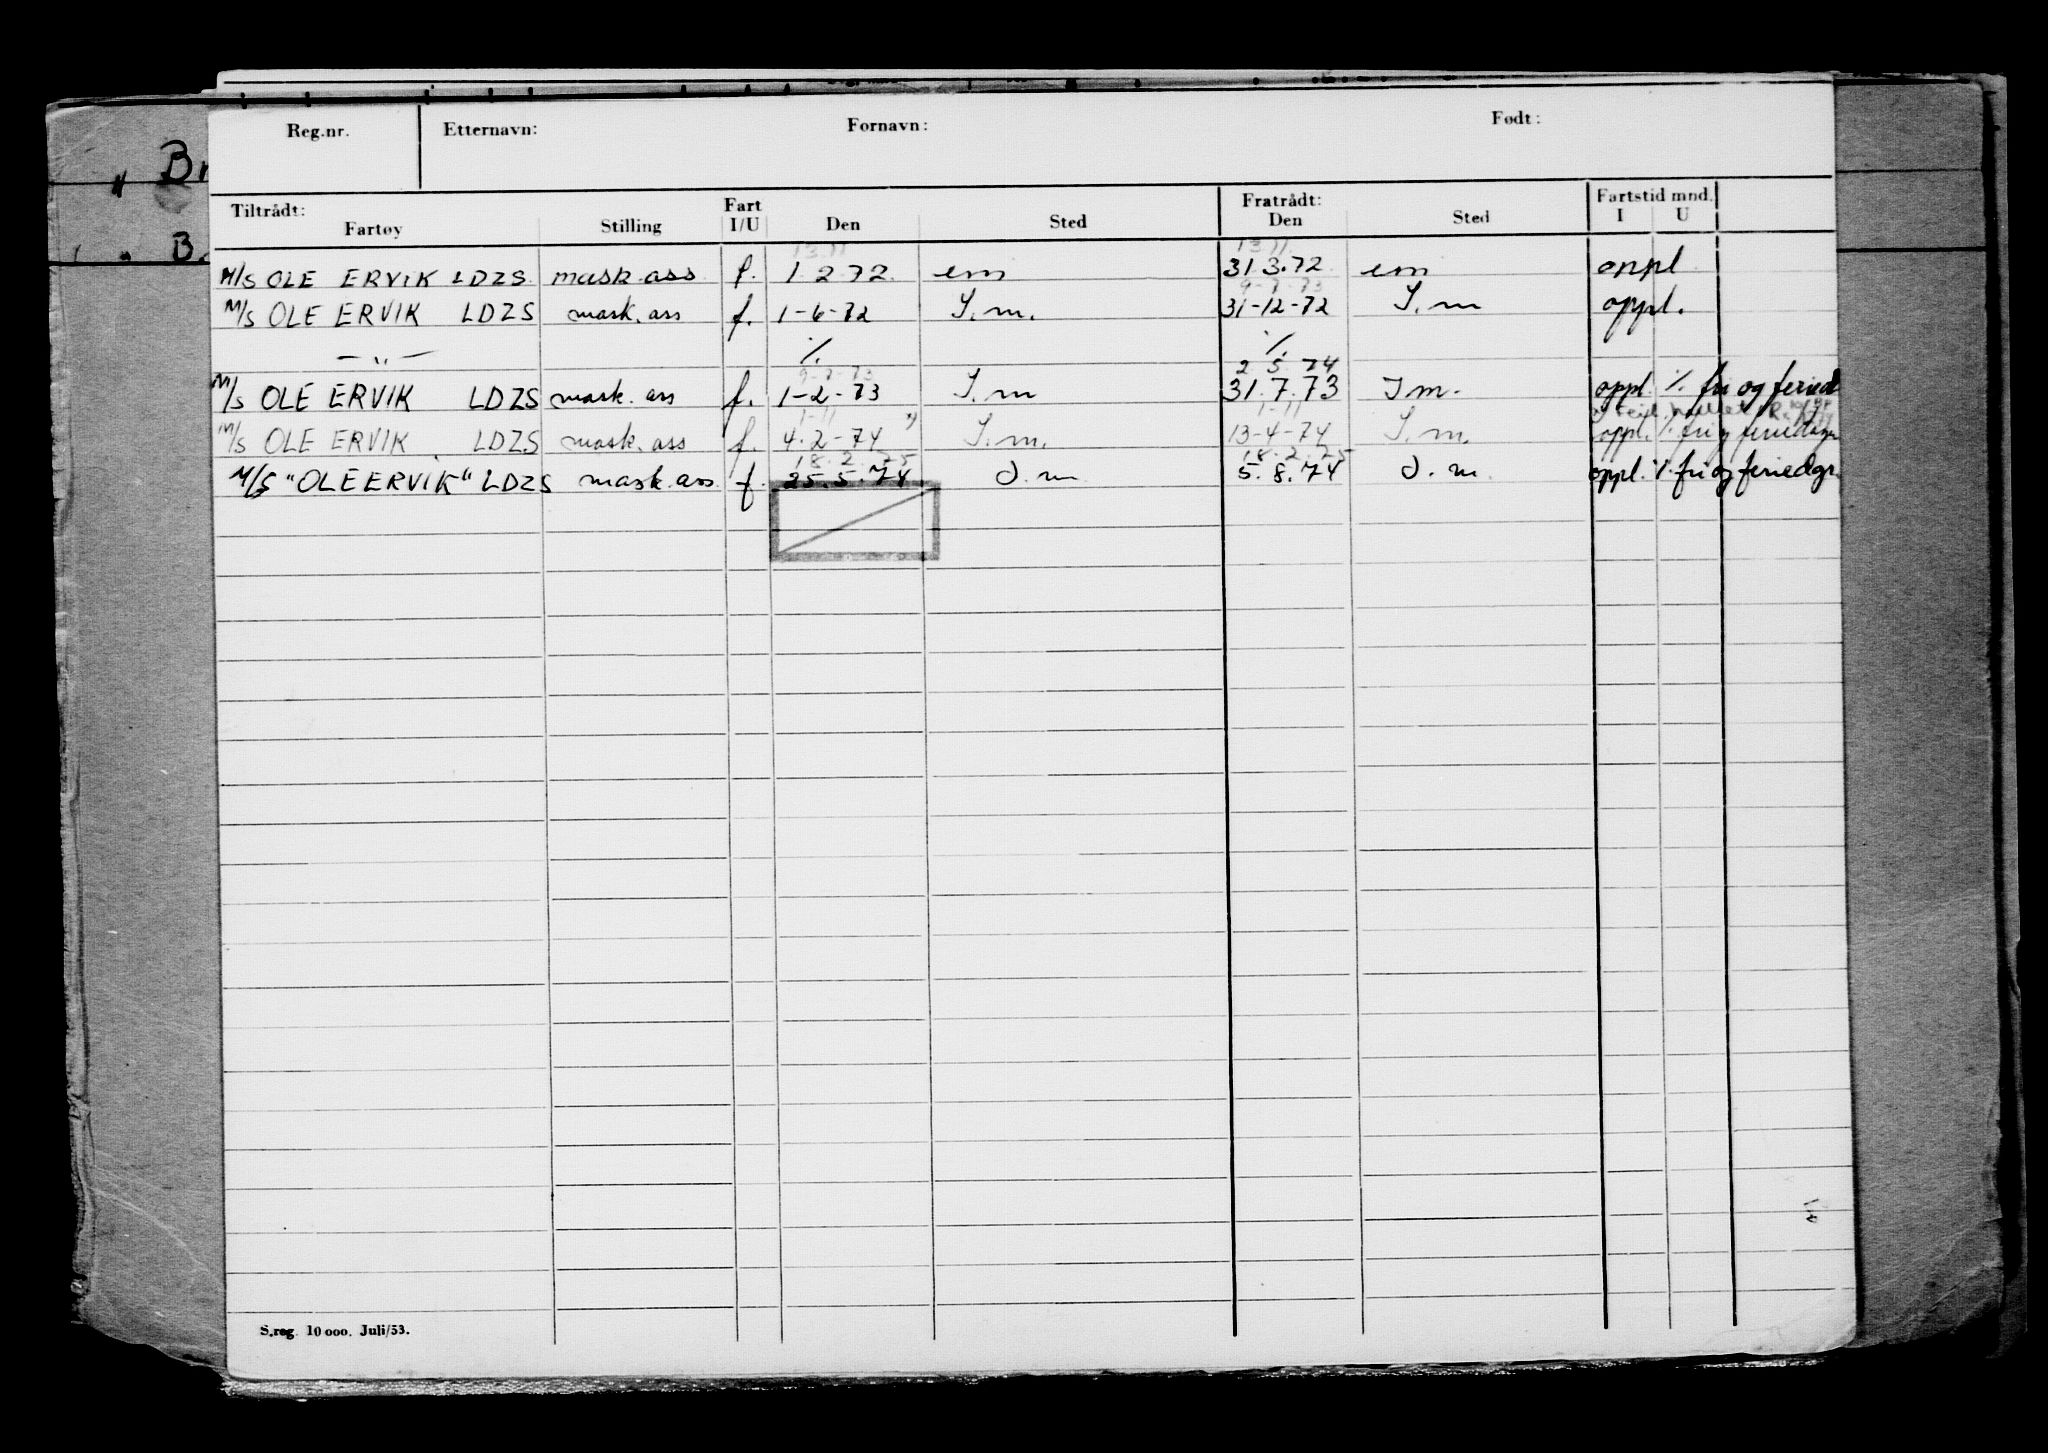 " Br
" B.
Reg.nr. Etternavn: Fornavn: Født:
Tiltrådt: Fart Fratrådt: Fartstid mnd.
Fartøy Stilling I/U Den Sted Den Sted I U
13.11 13.11.
M/S OLE ERVIK LDZS mask.ass f. 1 2 72. em 31 3.72 em oppl
9-7-73
M/S OLE ERVIK LDZS mask.ass f. 1-6-72 I.m. 31-12-72 I.m oppl.
— " — ./. ./.
9-7-73 2 5 74
M/S OLE ERVIK LDZS mask.ass f. 1-2-73 I.m 31.7.73 I m. oppl. ./. fri og feried
1-11 1-11
M/S OLE ERVIK LDZS mask.ass f. 4.2-74 x) I.m. 13-4-74 I.m. oppl. ./. fri og feriedager
18.2.75 18.2.75
M/S "OLE ERVIK" LDZS mask.ass f. 25.5.74 I.m 5.8.74 I.m. oppl. ./. fri og feriedgr.
S.reg. 10 000. Juli/53.